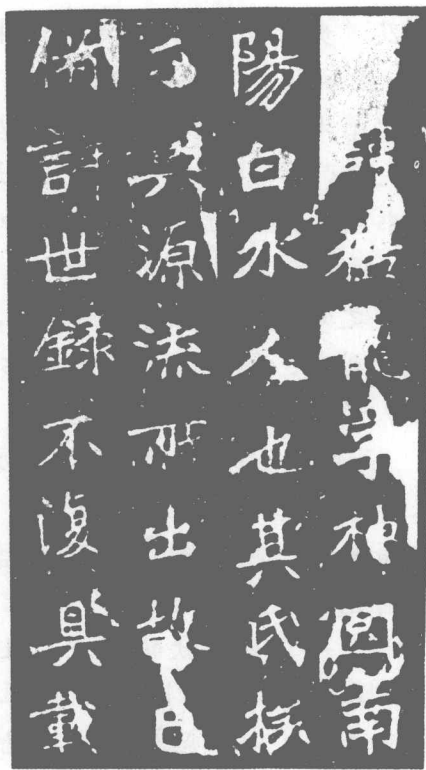 諱猛龍字神冏南
陽白水人也其氏族
興源流所出故已
備詳世録不復具載